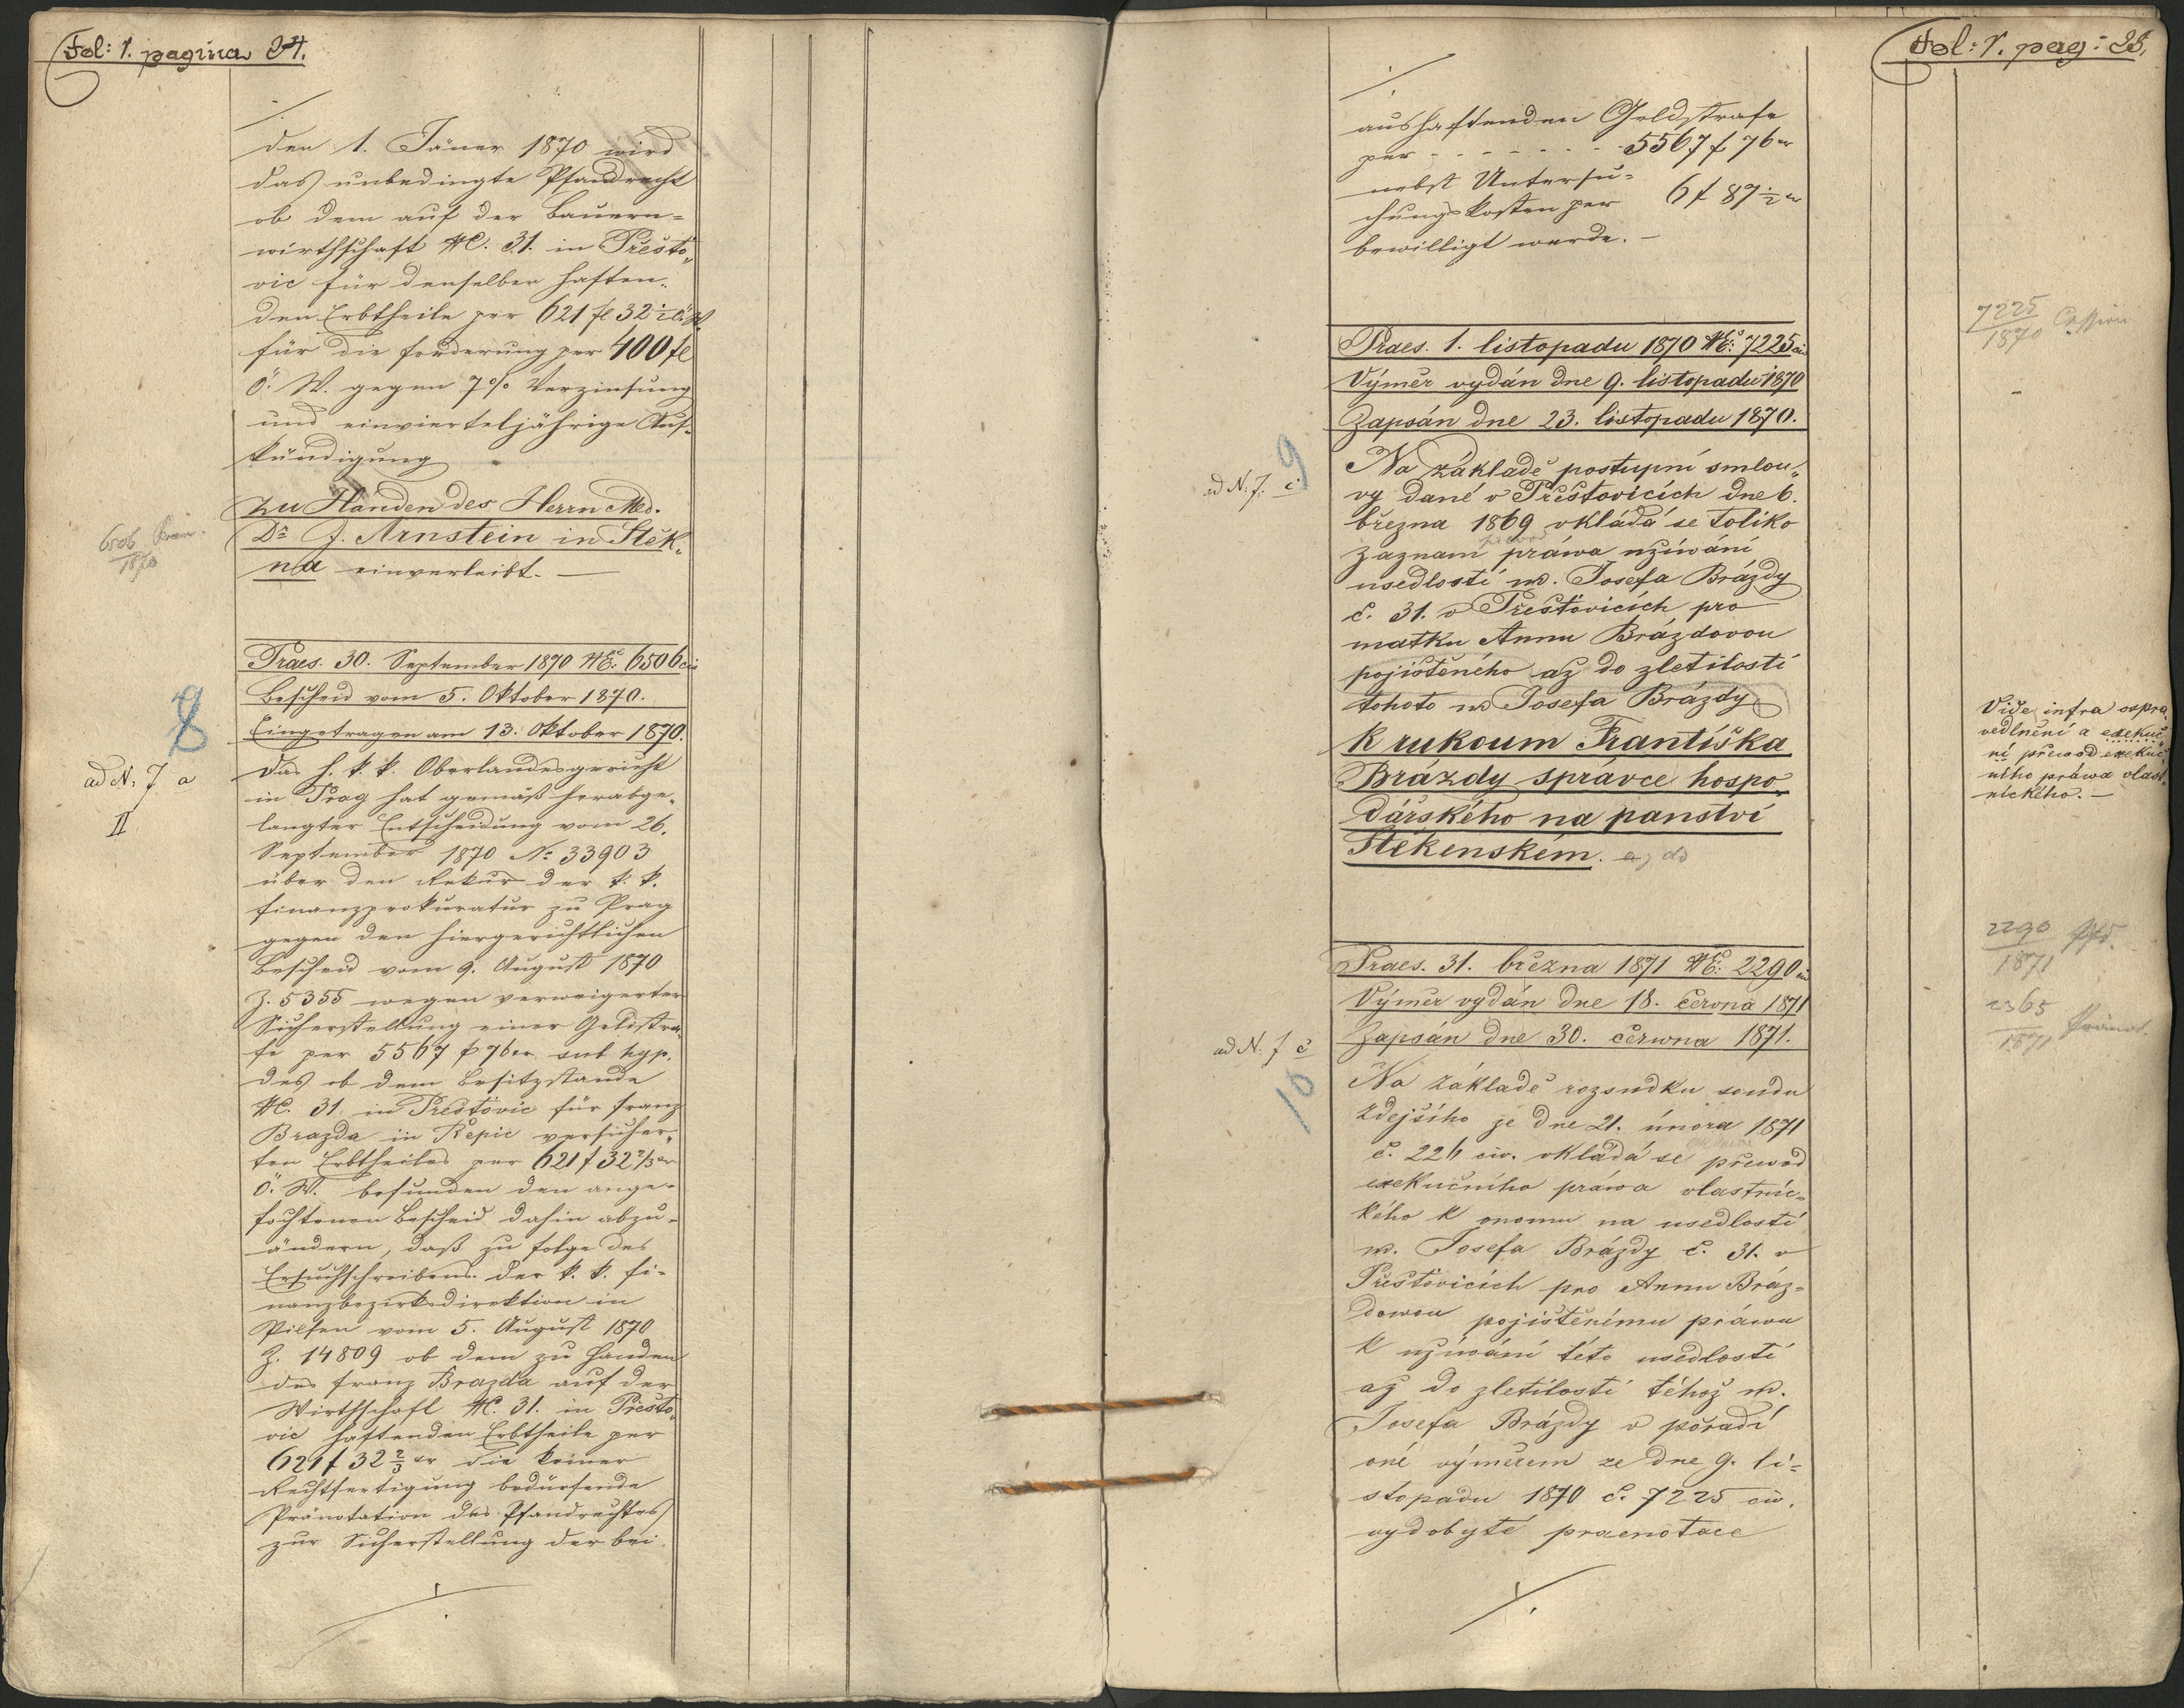 Fol: 1. pagina 24.
den 1. Jäner 1870 wird
das unbedingte Pfandrecht
ob dem auf der Bauern-
wirthschaft NC. 31. in Přešťo„
vic für denselben haften-
den Erbtheile per 621 fl 32 ½ ö. W.
für die Forderung per 400 fl
Ö. W. gegen 7% Verzinsung
und einvierteljährige Auf-
kündigung
zu Handen des Herrn Med.
Dr J. Arnstein in Štěk„
na einverleibt. —
6506
1870
Praes. 30. September 1870 NE: 6506 civ
Bescheid vom 5. Oktober 1870.
Eingetragen am 13. Oktober 1870.
8
ad N. 7 a
II
Das h. k. k. Oberlandesgericht
in Prag hat gemäß herabge„
langter Entscheidung vom 26.
September 1870 No 33903
über den Rekurs der k. k.
Finanzprokuratur zu Prag
gegen den hiergerichtlichen
Bescheid vom 9. August 1870
Z. 5355 wegen verweigerter
Sicherstellung einer Geldstra„
fe per 5567 f 76 xr sub hyp.
des ob dem Besitzstande
NC. 31 in Přešťovic für Franz
Brazda in Řepic versicher„
ten Erbtheiles per 621 f 32 2/3 xr
Ö. W. befunden den ange-
fochtenen Bescheid dahin abzu-
ändern, daß zu folge des
Ersuchschreibens der k. k. Fi-
nanzbezirksdirektion in
Pilsen vom 5. August 1870
Z. 14809 ob dem zu Handen
des Franz Brazda auf der
Wirthschaft NC. 31. in Přešťo„
vic haftenden Erbtheile per
621 f 32 2/3 xr die keiner
Rechtfertigung bedürfende
Pränotation des Pfandrechtes
zur Sicherstellung der bei
./.
Fol: 1. pag: 25.
./.
aushaftenden Geldstrafe
per - - - - - - - 5567 f 76 xr
nebst Untersu-
chungskosten per 6 f 87 ½ xr
bewilligt werde. —
7225
1870 Cession
Praes. 1. listopadu 1870 NE: 7225 civ
Výměr vydán dne 9. listopadu 1870
Zapsán dne 23. listopadu 1870.
ad N. 7. c
9
Na základě postupní smlou„
vy dané v Přešťovicích dne 6.
března 1869 vkládá se toliko
převod
záznam práwa užíwání
usedlosti n. Josefa Brázdy
č. 31. v Přešťovicích pro
matku Annu Brázdovou
pojištěného až do zletilosti
tohoto n. Josefa Brázdy
k rukoum Františka
Brázdy správce hospo„
dářského na panství
Štěkenském.
Vide infra ospra„
vedlnění a exekuč„
ní převod exekuč„
ního práwa vlast„
nického. —
2290
1871
2365
1871 Pränot.
Praes. 31. března 1871 NE: 2290 civ
Výměr vydán dne 18. června 1871
Zapsán dne 30. čerwna 1871.
ad N. 7 c
10
Na základě rozsudku soudu
zdejšího ze dne 21. února 1871
č. 226 civ. vkládá se přewod
exekučního práwa vlastnic„
kého k onomu na usedlosti
n. Josefa Brázdy č. 31. v
Přešťovicích pro Annu Bráz-
dowou pojištěnímu práwu
k užíwání této usedlosti
až do zletilosti téhož n.
Josefa Brázdy v pořadí
oné výměrem ze dne 9. li-
stopadu 1870 č. 7225 civ.
vydobyté praenotace
./.